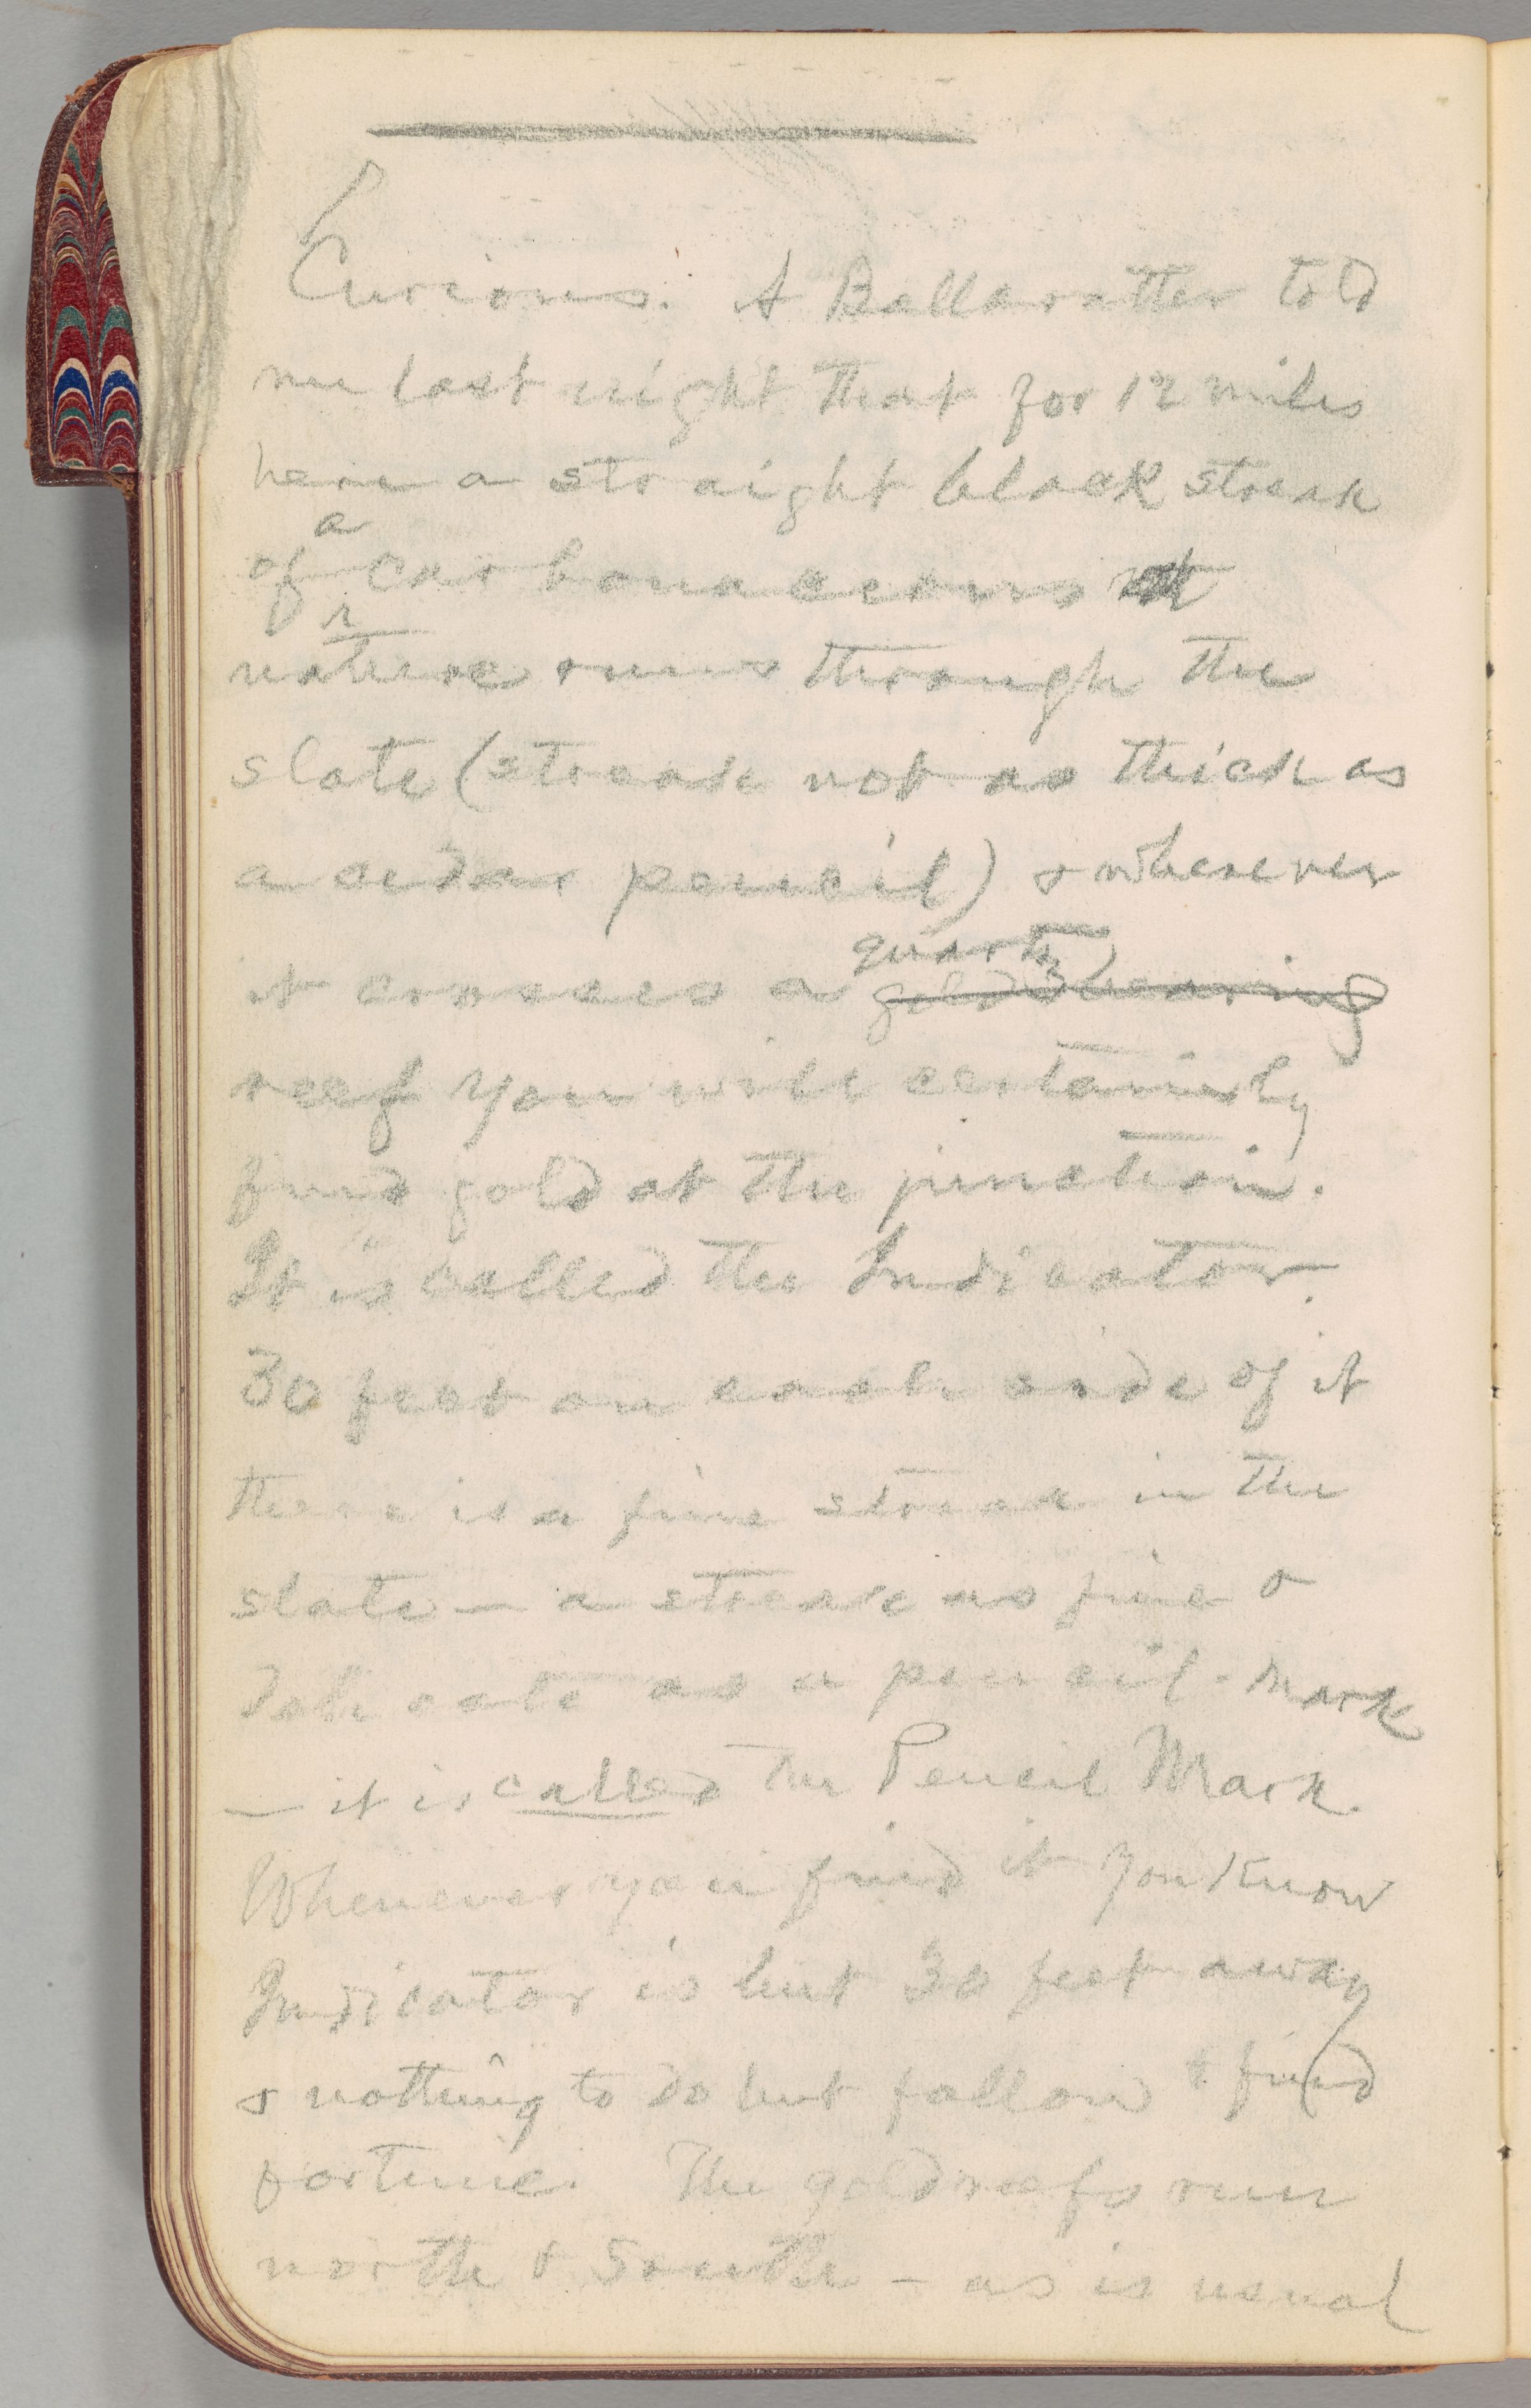 Curious. A Ballaratter told
me last night that for 12 miles
here a straight black streak
of a carbonaceous
nature runs through the
slate (streak not as thick as
a cedar pencil) & wherever
it crosses a quartz gold-bearing
reef you will certainly
find gold at the junction.
It is called the Indicator.
30 feet on each side of it
there is a fine streak in the
slate — a streak as fine &
delicate as a pencil-mark
— it is called the Pencil Mark.
Whenever you find it you know
Indicator is but 30 feet away
& nothing to do but follow & find
fortune. The gold reefs run
north & south — as is usual